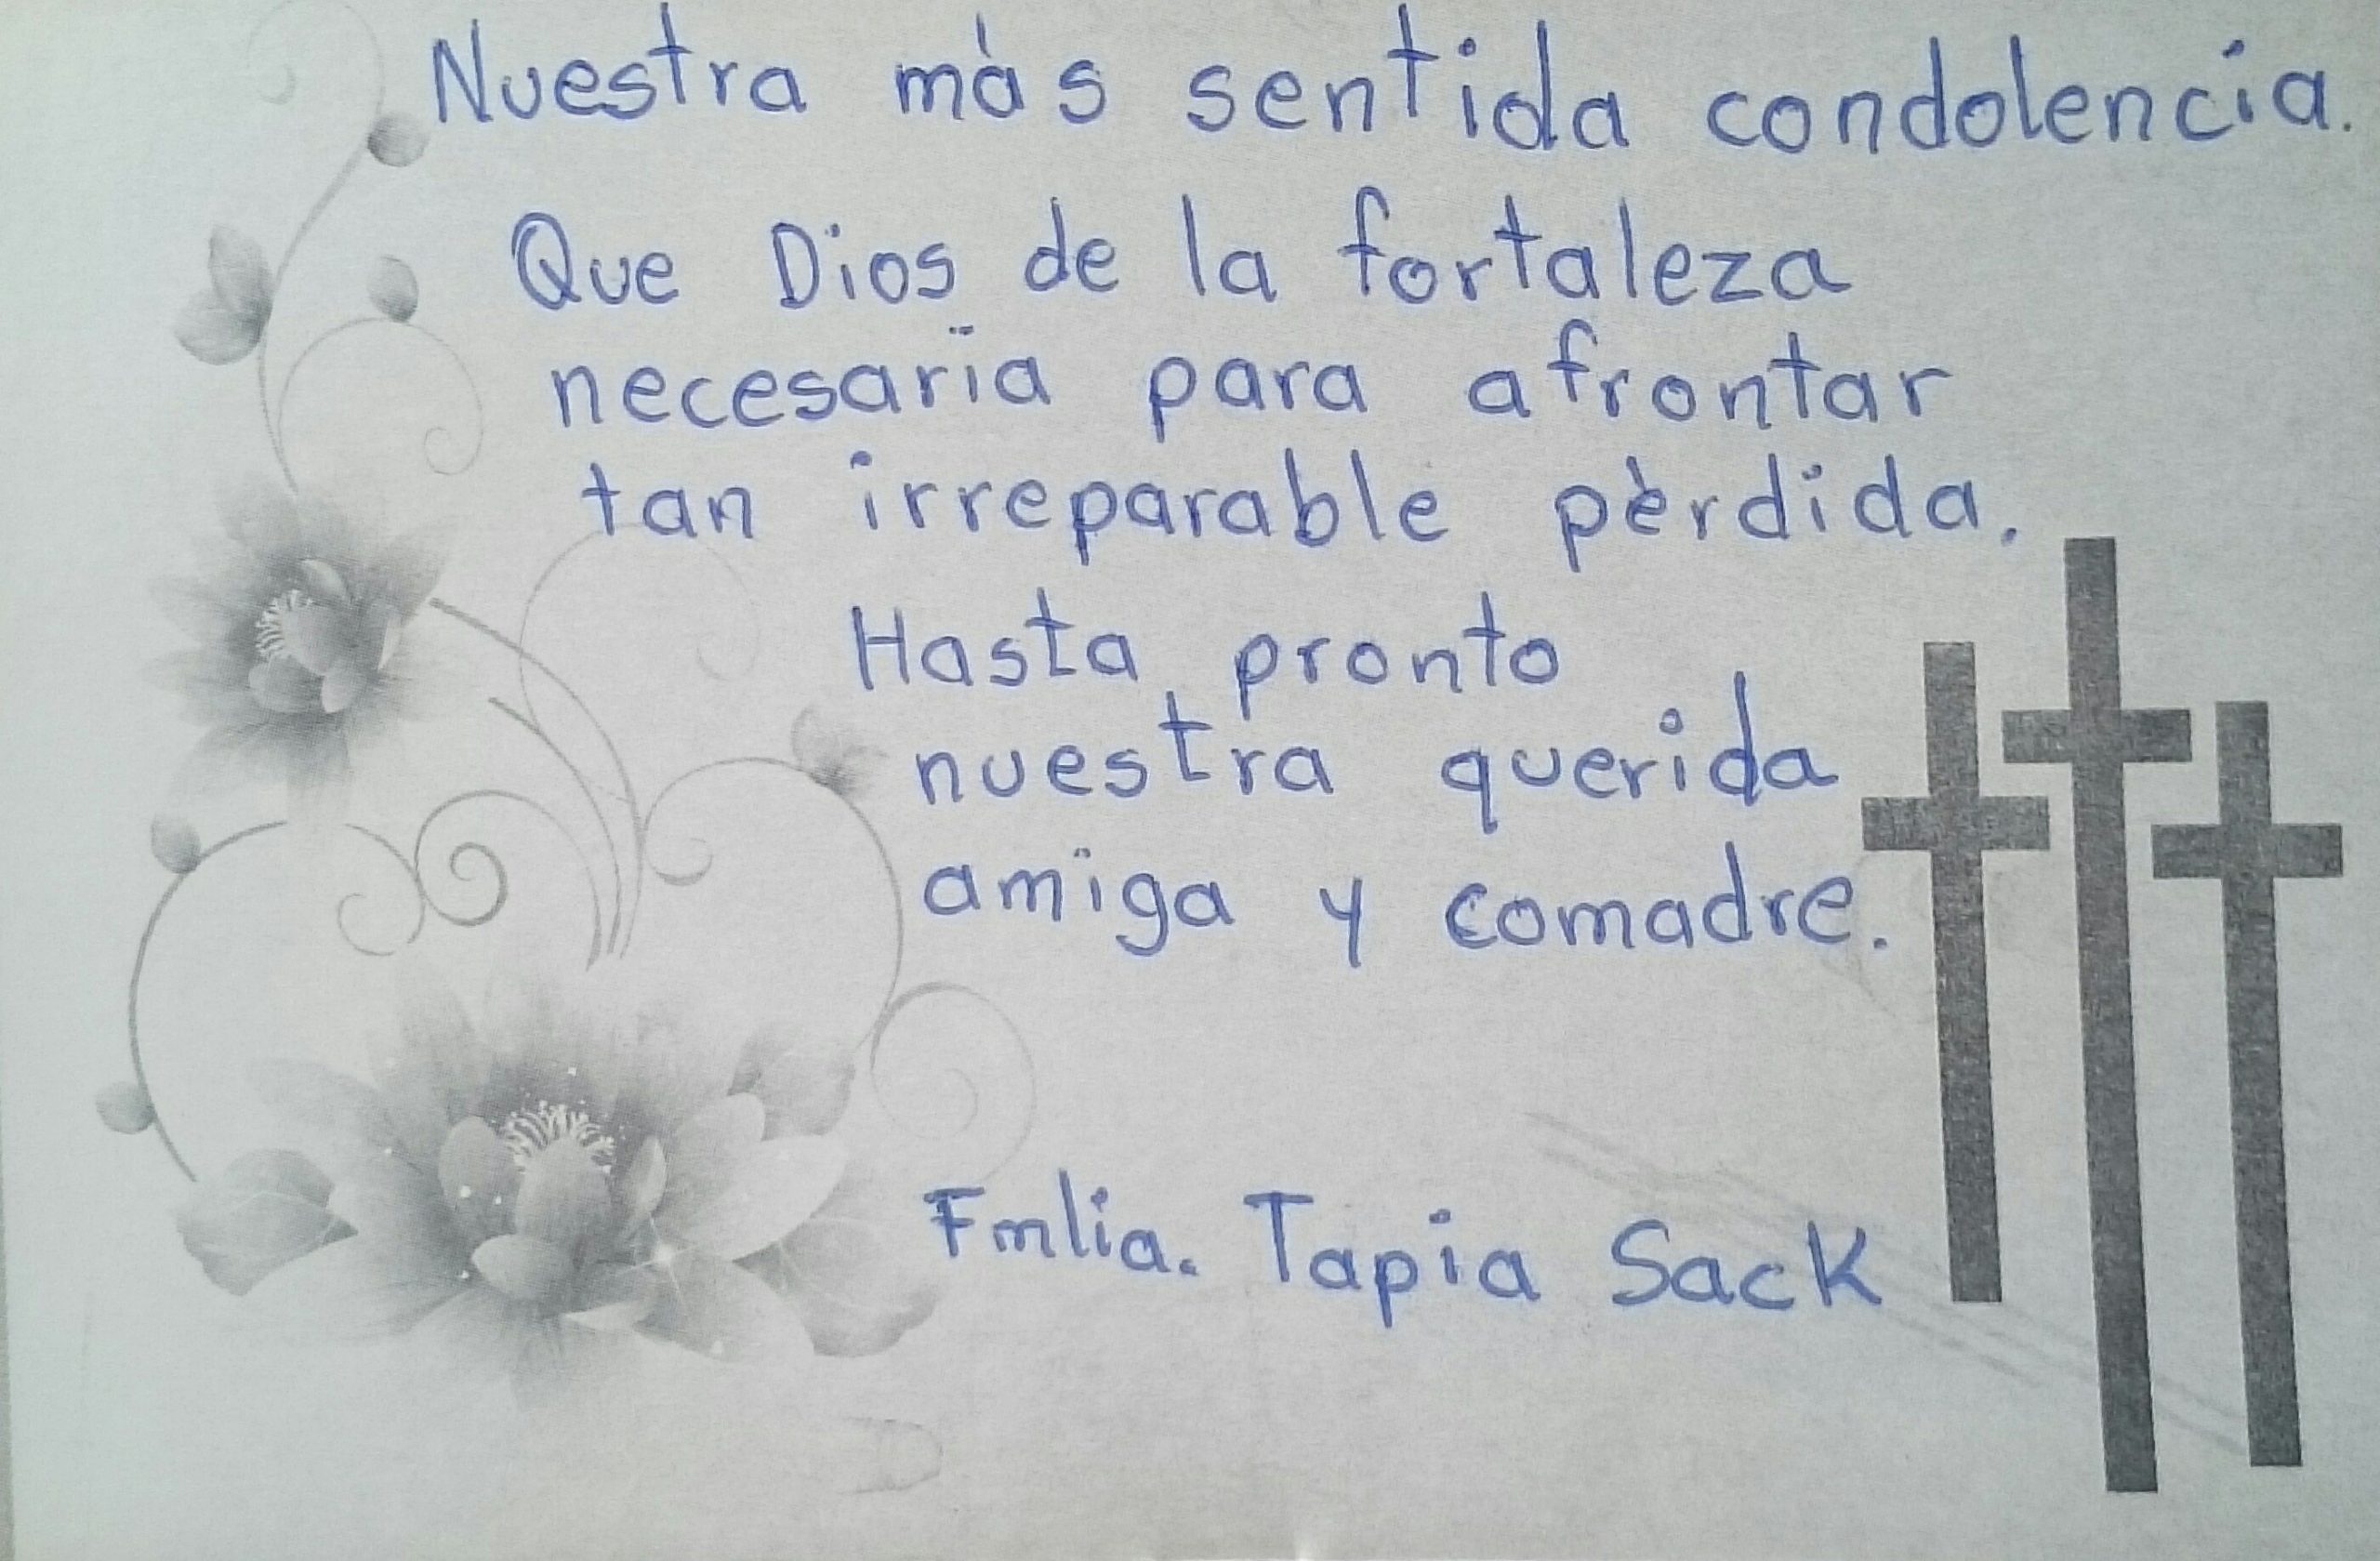 Nuestra màs sentida condolencia.
Que Dios de la fortaleza
necesaria para afrontar
tan irreparable pèrdida.
Hasta pronto
nuestra querida
amiga y comadre.
Fmlia. Tapia Sack